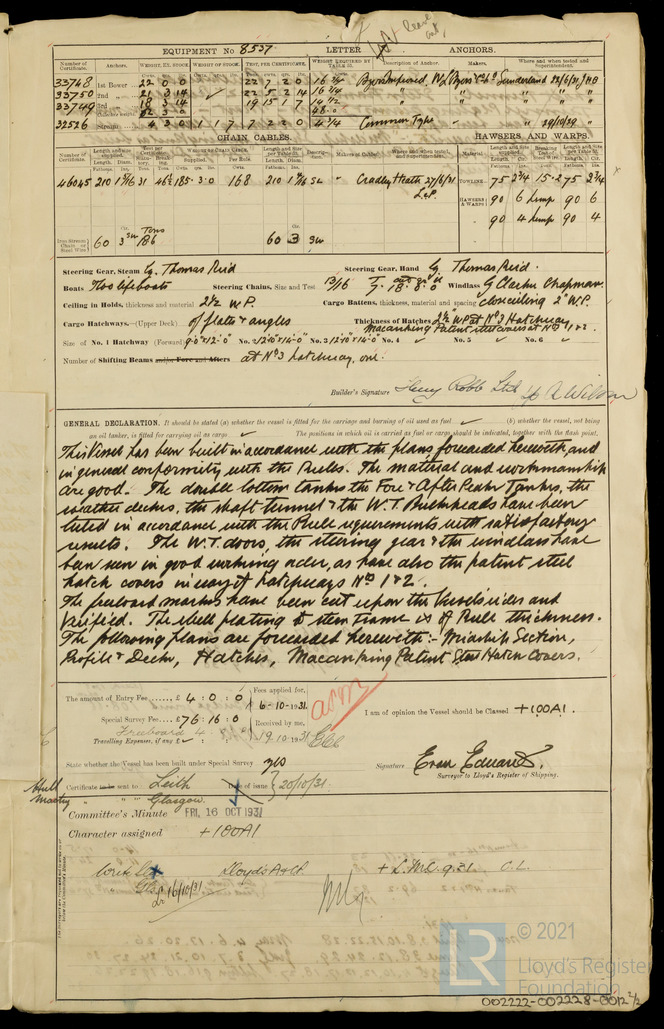 EQUIPMENT No 8537 LETTER ANCHORS.
Number of Certificate. Anchors. WEIGHT, EX. STOCK WEIGHT OF STOCK. TEST, PER CERTIFICATE. WEIGHT REQUIRED BY TABLE 22. Description of Anchor. Makers. Where and when tested and Superintendent.
33748 1st Bower 22 0 0 22 7 2 0 16 3/4 Byers Improved W. L. Byers & Co Sunderland 22/6/31 JHB
33750 2nd " 21 3 14 ✓ 22 5 2 14 16 3/4 " " " "
33749 3rd " 18 3 14 19 15 1 7 14 1/2 " " " "
62 3 0 48.0
32526 Stream 4 3 0 1 1 7 7 2 2 0 4 3/4 Common Type " " 29/10/29 "
CHAIN CABLES. HAWSERS AND WARPS.
46045 210 1 9/16 31 46 1/2 185.3.0 168 210 1 9/16 SL " Cradley Heath 27/6/31 TOWLINE 75 2 3/4 15.2 75 2 3/4
HAWSERS & WARPS 90 6 hemp 90 6
90 4 hemp 90 4
Iron Stream Chain or Steel Wire 60 3 SW 18.6 Tons 60 3 SW
Steering Gear, Steam by Thomas Reid Steering Gear, Hand by Thomas Reid.
Boats Two lifeboats Steering Chains, Size and Test 13/16 Windlass by Clarke Chapman.
Ceiling in Holds, thickness and material 2 1/2 W.P. Cargo Battens, thickness, material and spacing close ceiling 2" W.P.
Cargo Hatchways.—(Upper Deck) of plates & angles Thickness of Hatches 2 1/2 W.P. at No 3 Hatchway
Macanking Patent steel covers at Nos 1 & 2.
Size of No. 1 Hatchway (Forward) 9'0"x12'0" No. 2 12'0"x14'0" No. 3 12'0"x14'0" No. 4 ✓ No. 5 ✓ No. 6 ✓
Number of Shifting Beams and/or Fore and Afters at No 3 hatchway, one.
Builder's Signature Henry Robb Ltd pp A Wilson
GENERAL DECLARATION. It should be stated (a) whether the vessel is fitted for the carriage and burning of oil used as fuel ✓ (b) whether the vessel, not being
an oil tanker, is fitted for carrying oil as cargo ✓ The positions in which oil is carried as fuel or cargo should be indicated, together with the flash point.
This Vessel has been built in accordance with the plans forwarded herewith, and
in general conformity with the Rules. The material and workmanship
are good. The double bottom tanks the Fore & After Peak Tanks, the
weather decks, the shaft tunnel & the W.T. Bulkheads have been
tested in accordance with the Rule requirements with satisfactory
results. The W.T. doors, the steering gear & the windlass have
been seen in good working order, as have also the patent steel
hatch covers in way of hatchways Nos 1 & 2.
The freeboard marks have been cut upon the Vessel's sides and
Verified. The shell plating & stem frame is of Rule thickness.
The following plans are forwarded herewith:- Midship Section,
Profile & Decks, Hatches, Macanking Patent Steel Hatch Covers.
The amount of Entry Fee £ 4 : 0 : 0 Fees applied for,
Special Survey Fee £76 : 16 : 0 6-10-1931.
Freeboard 4 Received by me,
Travelling Expenses, if any £ ✓ 19.10.1931
I am of opinion the Vessel should be Classed +100A1.
State whether the Vessel has been built under Special Survey yes
Signature Evan Edwards.
Surveyor to Lloyd's Register of Shipping.
Hull Certificate to be sent to Leith Date of issue 20/10/31.
Machy " " " Glasgow.
Committee's Minute FRI. 16 OCT 1931
Character assigned +100A1
Lloyd's A&CP. + L.M.C. 9.31 C.L.
16/10/31
© 2021
LR
Lloyd's Register
Foundation
002222-002228-0012 2/2